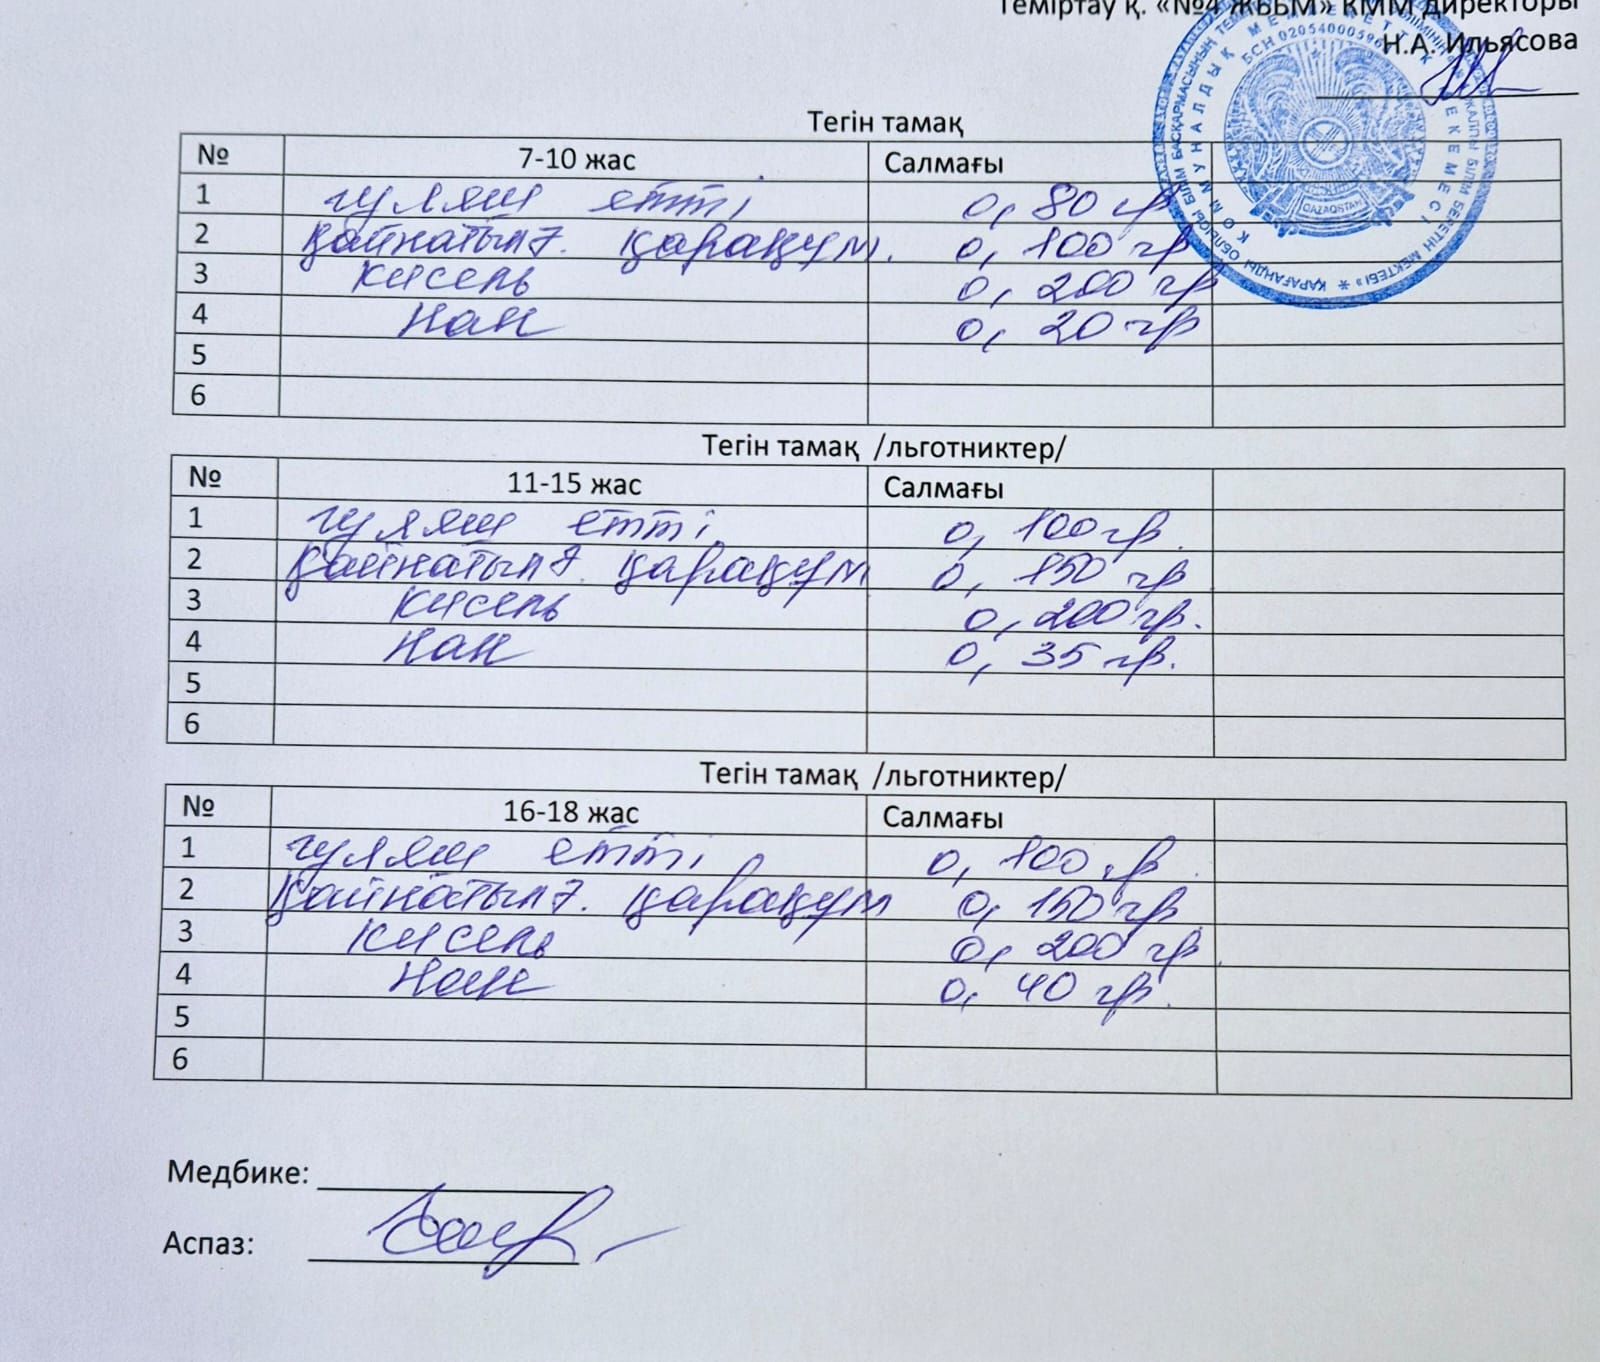 Теміртау қ. «№4 ЖББМ» КММ директоры
Н.А. Ильясова
БСН 02054000596
QAZAQSTAN
Тегін тамақ
№ 7-10 жас Салмағы
1 гуляш етті 0,80 гр
2 қайнатылғ. қарақұм. 0,100 гр
3 кисель 0,200 гр
4 нан 0,20 гр
5
6
Тегін тамақ /льготниктер/
№ 11-15 жас Салмағы
1 гуляш етті 0,100 гр.
2 қайнатылғ. қарақұм 0,150 гр
3 кисель 0,200 гр.
4 нан 0,35 гр.
5
6
Тегін тамақ /льготниктер/
№ 16-18 жас Салмағы
1 гуляш етті 0,100 гр.
2 қайнатылғ. қарақұм 0,150 гр
3 кисель 0,200 гр
4 нан 0,40 гр.
5
6
Медбике:
Аспаз: